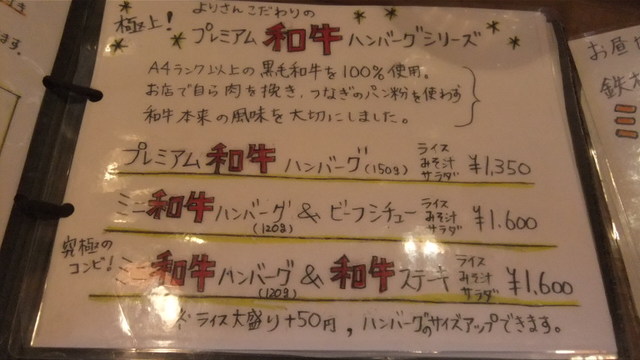 極上!
よりさんこだわりの
プレミアム和牛ハンバーグシリーズ
A4ランク以上の黒毛和牛を100%使用。
お店で自ら肉を挽き、つなぎのパン粉を使わず
和牛本来の風味を大切にしました。
プレミアム和牛ハンバーグ(150g) ライス みそ汁 サラダ ¥1,350
ミニ和牛ハンバーグ(120g) & ビーフシチュー ライス みそ汁 サラダ ¥1,600
究極のコンビ!
ミニ和牛ハンバーグ(120g) & 和牛ステーキ ライス みそ汁 サラダ ¥1,600
※ライス大盛り+50円, ハンバーグのサイズアップできます。
ます。
お昼
鉄